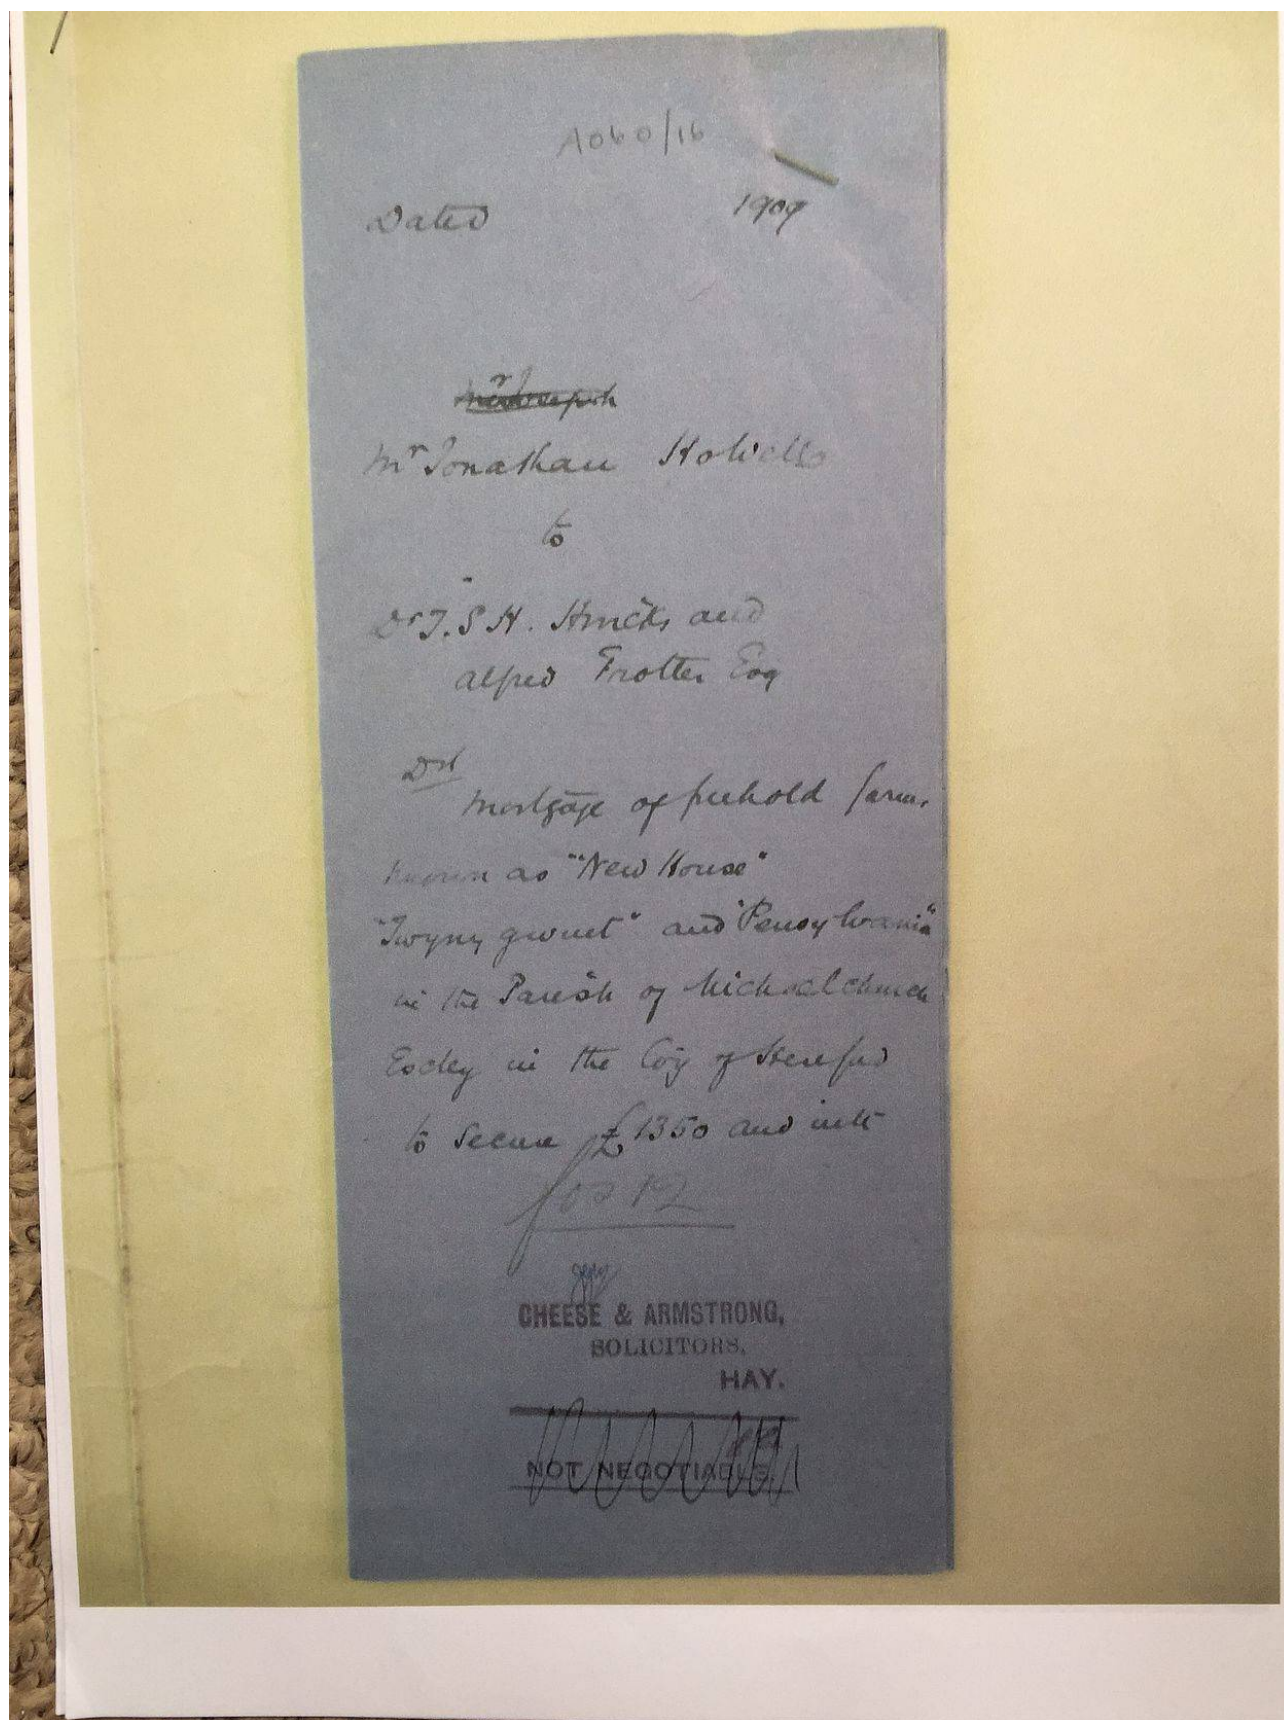 A060/16
Dated 1909
Mr Joseph
Mr Jonathan Howells
to
Dr T. S H. Hincks and
Alfred Trotter Esq
Dft
Mortgage of freehold farm
known as "New House"
gwnet" and "Pensylvania"
in the Parish of Michaelchurch
Escley in the Coy of Hereford
to secure £1350 and intt
CHEESE & ARMSTRONG,
SOLICITORS,
HAY.
NOT NEGOTIABLE.